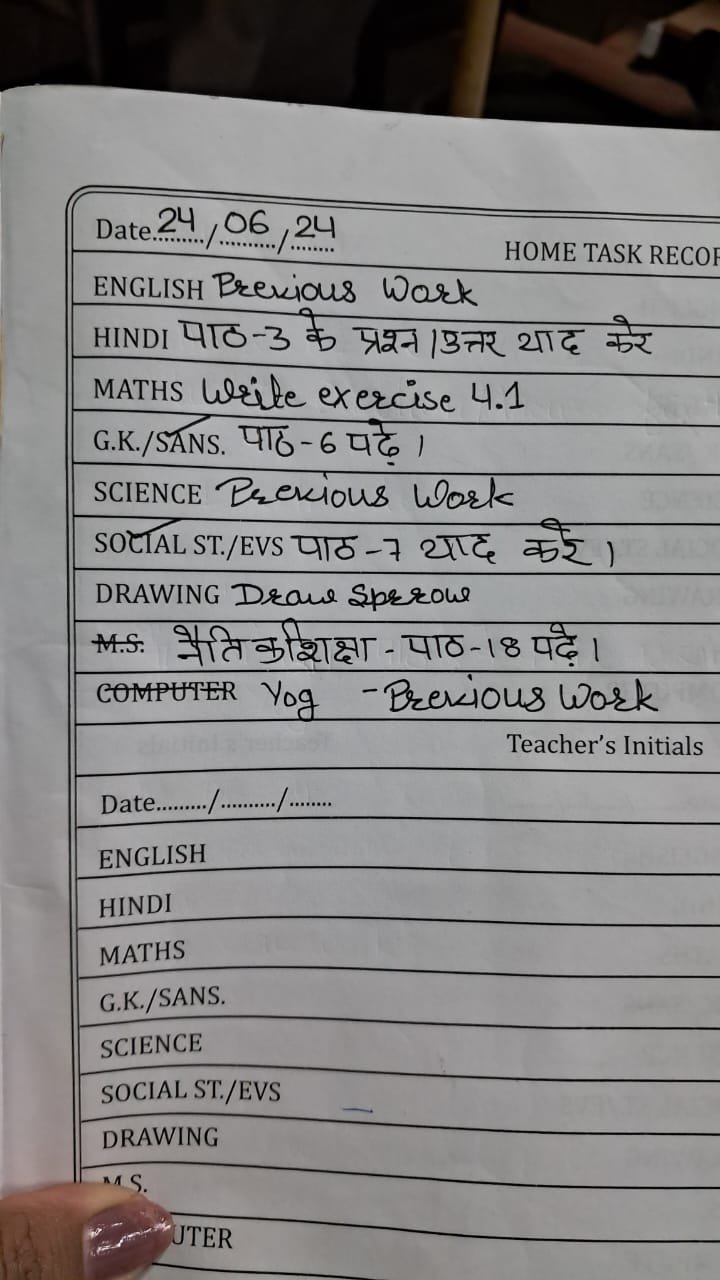 Date 24/06/24
HOME TASK RECOR
ENGLISH Previous Work
HINDI पाठ-3 के प्रश्न/उत्तर याद करे
MATHS Write exercise 4.1
G.K./SANS. पाठ-6 पढ़े।
SCIENCE Previous Work
SOCIAL ST./EVS पाठ-7 याद करे।
DRAWING Draw Sperow
M.S. नैतिक शिक्षा - पाठ-18 पढ़े।
COMPUTER Yog - Previous Work
Teacher's Initials
Date........./........../........
ENGLISH
HINDI
MATHS
G.K./SANS.
SCIENCE
SOCIAL ST./EVS
DRAWING
M.S.
UTER